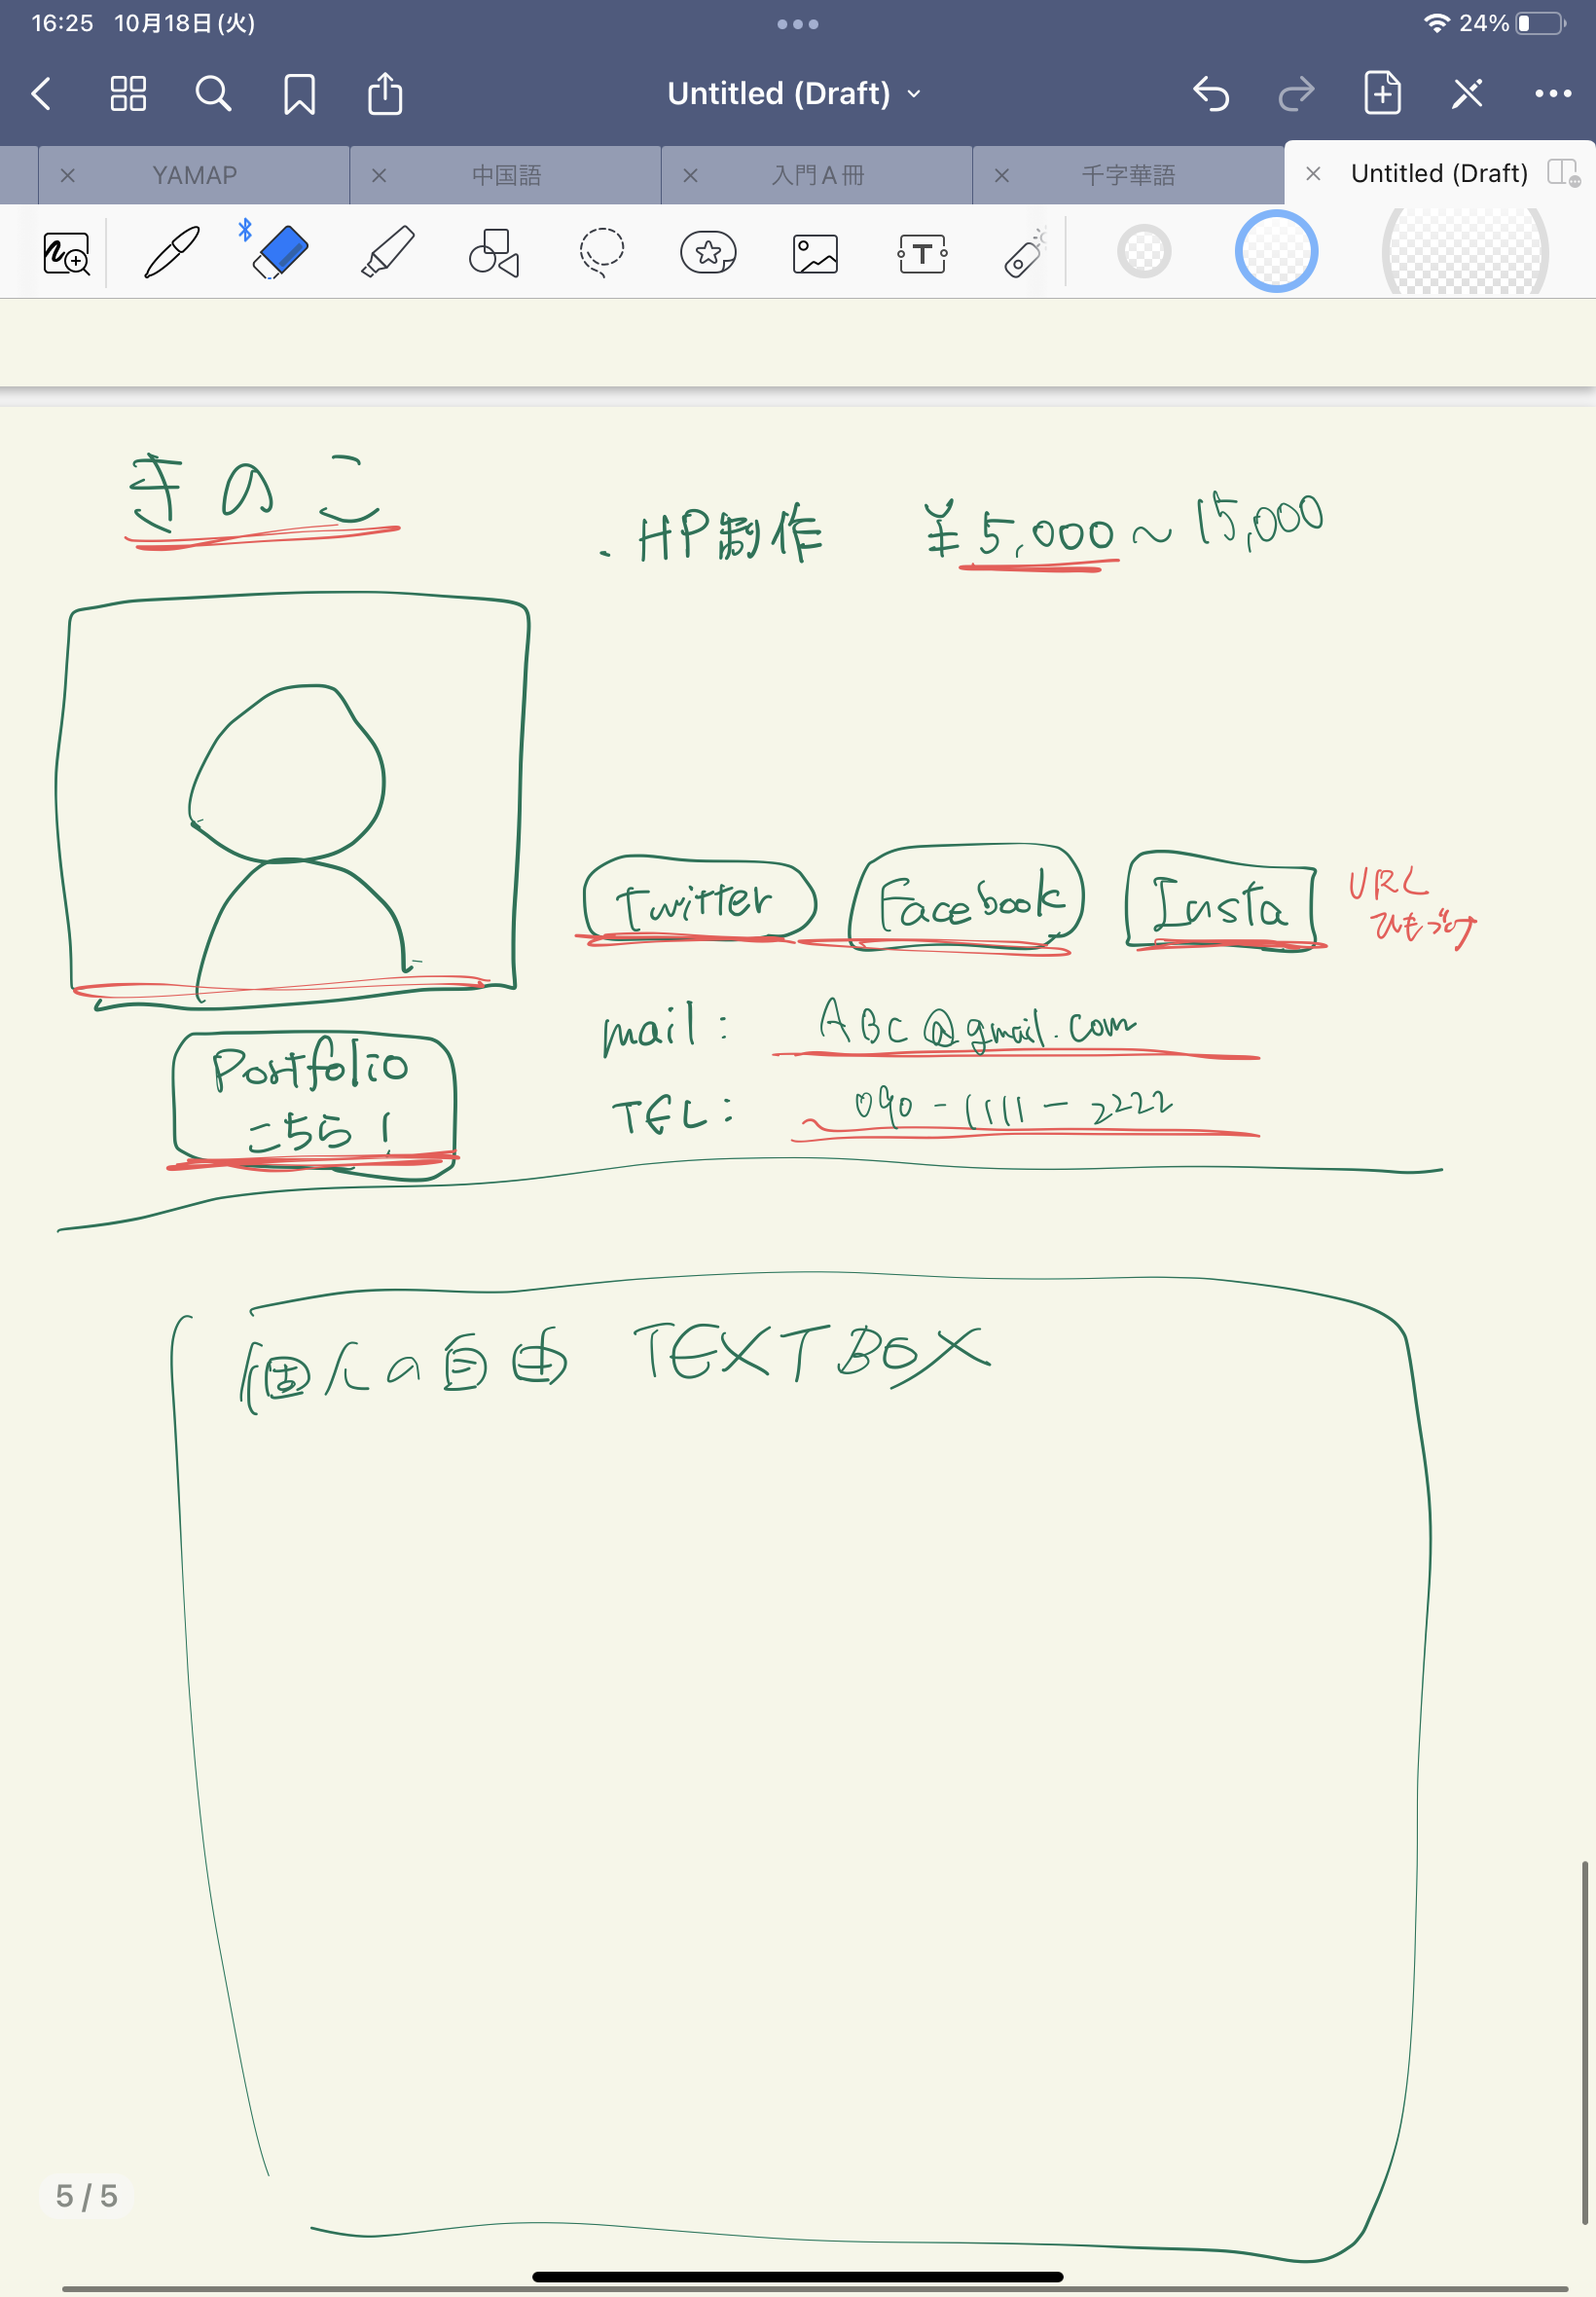 16:25 10月18日(火)
24%
Untitled (Draft)
YAMAP
中国語
入門A冊
千字華語
Untitled (Draft)
T
きのこ
・HP制作 ¥5,000~15,000
Twitter
Facebook
Insta
URL
ひもづけ
mail: ABC@gmail.com
TEL: 090-1111-2222
Portfolio
こちら!
個人の自由 TEXTBOX
5/5